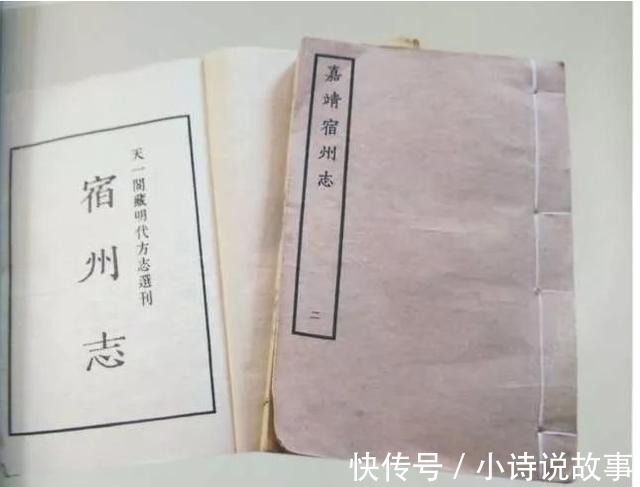 天一閣藏明代方志選刊
宿州志
嘉靖宿州志
二
快传号 / 小诗说故事